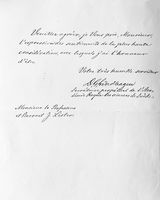 Veuillez agréer, je Vous prie, Monsieur,
l'expression des sentiments de la plus haute
considération, avec laquelle j'ai l'honneur
d'être
Votre très humble serviteur
Secrétaire perpétuel de l'Acad.
Monsieur le Professeur
et Baron J. Lister